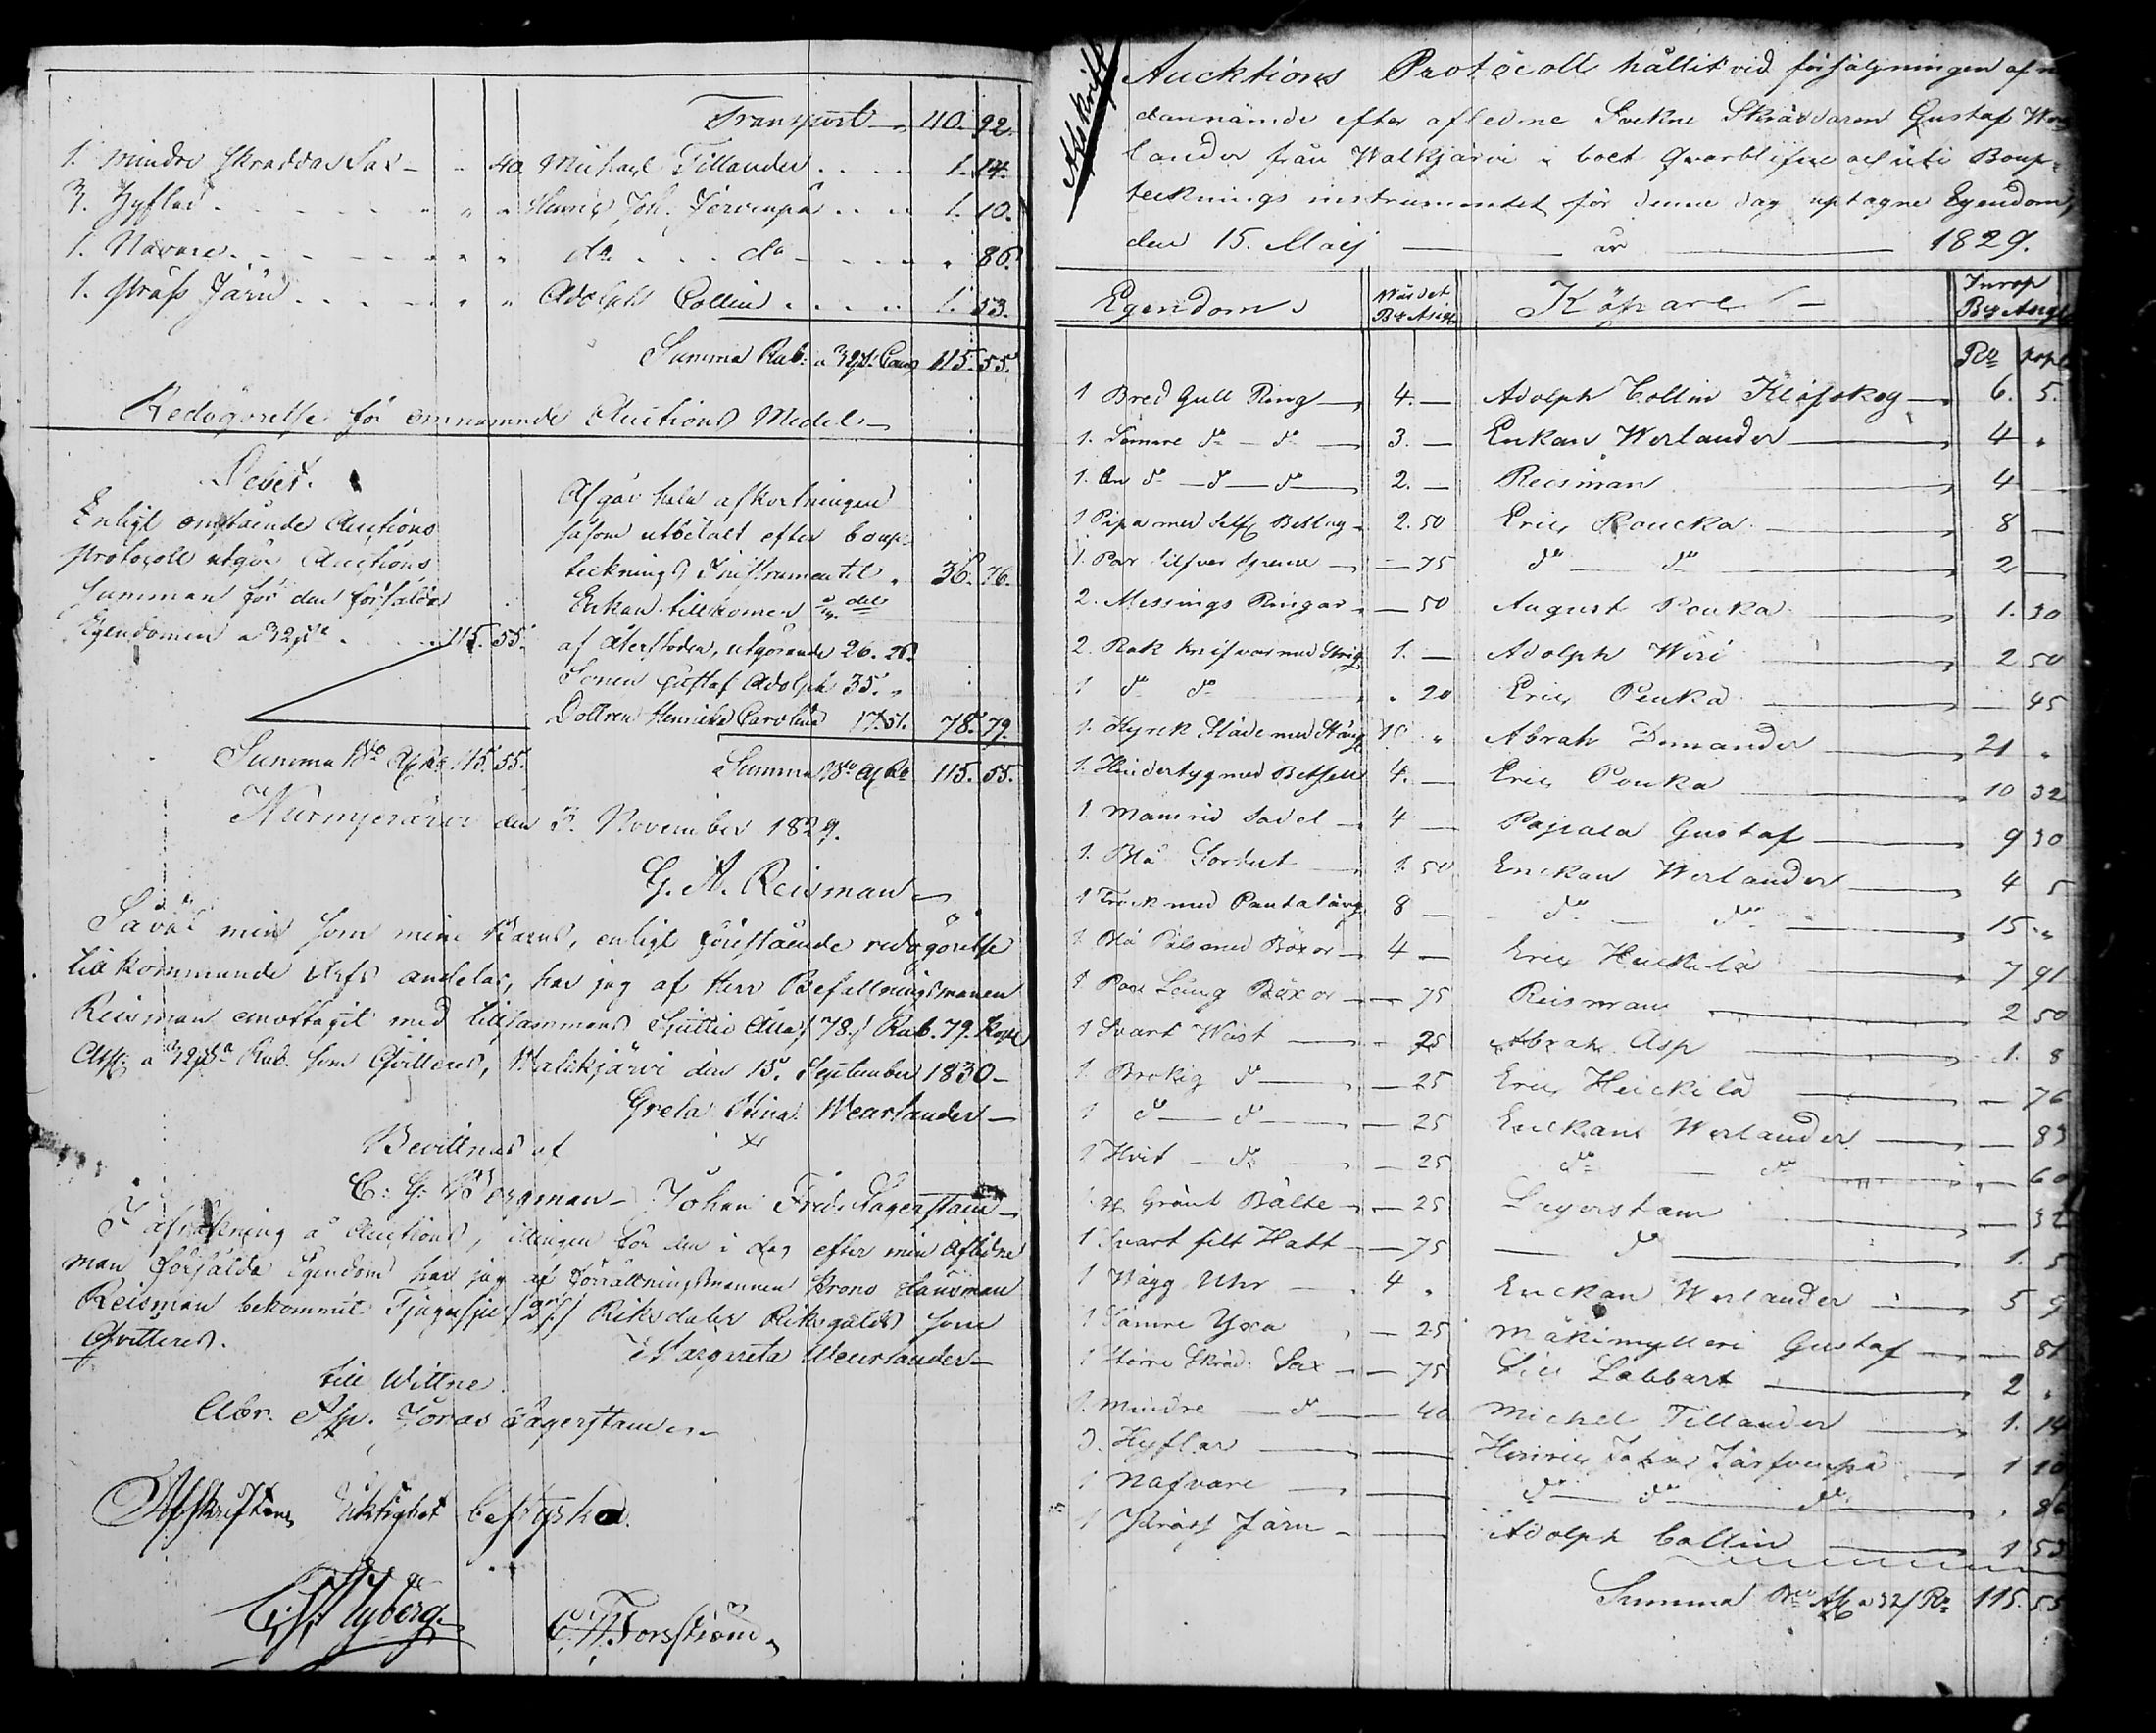 Transport 110. 92.
1. mindre skräddar Sax 40. Michael Tillander 1. 14.
3. Hyflar Henric Joh. Järvenpä 1. 10.
1. Navare do do 86.
1. Präss Järn Adolph Collin 1. 53.
Summa Rub. 115. 55.
Redogörelse för omnämnde Auctions Medel
Debet.
Enligt omstående Auctions
protocoll utgör Auctions
summan för den försålda
Egendomen a 32 115. 55.
Afgår hela afkortningen
såsom utbetalt efter boup-
tecknings Instrumentet 36. 76.
Enkan tillkommer
af återstoden, utgörande 26. 26.
Sonen Gustaf Adolph 35.
Dottren Henrica Carolina 17. 51. 78. 79.
Summa 115. 55.
Summa 115. 55.
Nurmijärvi den 3. November 1829.
G. A. Reisman
Såväl min som mina Barns, enligt föreståe­nde redogörelse
tillkommande Arfs andelar, har jag af Herr Befallningsmannen
Reisman emottagit med tillsammans Sjuttio Åtta /78/ Rub. 79. Kop
a 32 Rub. som Qvitteras, Walkjärvi den 15. September 1830
Greta Stina Wearlander
Bevittnas af
C: G: Bergman Johan Fred: Lagerstam
I afräkning å Auctions för den i dag efter min Aflidne
man försålda Egendom har jag af Förrättningsmannen Krono Länsman
Reisman bekommit Tjugufju Riksdaler Riksgälds som
Qvitteras.
Margareta Wearlander
till Wittne
Abr. Asp. Jonas Lagerstam
Afskriftens riktighet bestyrka.
Nyberg. Forsström
Afskrift
Aucktions Protocoll hållit vid försäljningen af
dannämde efter afledne Sockne Skräddaren Gustaf Wer
lander från Walkjärvi i boet Qvarblifne och uti Boup-
tecknings instrumentet för denne dag uptagne Egendom,
den 15. Maij år 1829.
Egendom Wärdet Bco Asig Köpare Inrop Bco Asig
Ro kop
1 Bred Gull Ring 4. Adolph Collin Klöfskog 6. 5.
1. Sämre do do 3. Enkan Werlander 4
1. An do do do 2. Reisman 4
1 Pipa med Silf Beslag 2. 50 Eric Poucka 8
1. Par silfver Spenne 75 do do 2
2. Messings Ringar 50 August Pouka 1. 30
2. Rak knifvar med Strig 1. Adolph Wiri 2 50
1 do do 20 Eric Peuka 45
1. Kyrk Släde med Stång 10 Abrah Demander 21
1. Hindertyg med Betsell 4. Eric Pouka 10 32
1. Mans rid Sadel 4 Pajcala Gustaf 9 30
1. Blå Sordut 1. 50 Enckan Werlander 4 5
1 Frack med Pantalång 8 do do 15
1 Blå Päls med Böxor 4 Eric Heickilä 7 91
1 Par Lång Böxor 75 Reisman 2 50
1 Svart Wäst 25 Abrah Asp 1. 8
1. Brokig do 25 Eric Heickila 76
1 do do 25 Enckans Werlander 83
1 Hvit do 25 do do 60
1 Grönt Bälte 25 Lagerstam 32
1 Svart filt Hatt 75 do 1. 5
1 Wägg Uhr 4 Enckan Werlander 5 9
1 Sämre Yxa 25 Mäkimylleri Gustaf 81
1 Större Skräd: Sax 75 Labbart 2
1. mindre do 40 Michel Tillander 1. 14
3. Hyflar Henric Johan Järfvenpä 1 10
1 Nafvare do do do 86
1 Präss Järn Adolph Collin 1 53
Summa 115. 55